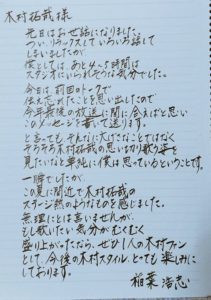 木村拓哉様
先日はお世話になりました。
ついリラックスしていろいろ話して
しまいましたが、
僕としては、あと4~5時間は
スタジオにいられそうな気分でした。
今日は、前回のトークで
伝え忘れたことを思い出したので
今年最後の放送に間に合えばと思い
このメッセージを書いて送ります。
と言ってもそんなに大げさなことではなく
そろそろ木村拓哉の思い切り歌う姿を
見たいなと単純に僕は思っているということです。
一瞬でしたが、
この夏に間近で木村拓哉の
ステージ熱のようなものを感じました。
無理にとは言いませんが、
もし歌いたい気分がむくむく
盛り上がったなら、ぜひ1人の木村ファン
として、今後の木村スタイル、とても楽しみに
しております。
稲葉浩志